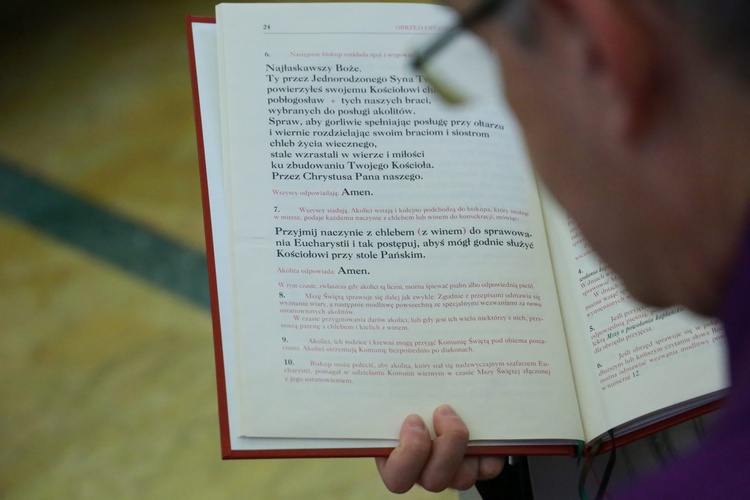 24
OBRZĘD
6. Następnie biskup rozkłada ręce i
Najłaskawszy Boże,
Ty przez Jednorodzonego Syna
powierzyłeś swojemu Kościołowi
pobłogosław + tych naszych braci,
wybranych do posługi akolitów.
Spraw, aby gorliwie spełniając posługę przy ołtarzu
i wiernie rozdzielając swoim braciom i siostrom
chleb życia wiecznego,
stale wzrastali w wierze i miłości
ku zbudowaniu Twojego Kościoła.
Przez Chrystusa Pana naszego.
Wszyscy odpowiadają: Amen.
7. Wszyscy siadają. Akolici wstają i kolejno podchodzą do biskupa, który siedząc
w mitrze, podaje każdemu naczynie z chlebem lub winem do konsekracji, mówiąc:
Przyjmij naczynie z chlebem (z winem) do sprawowa-
nia Eucharystii i tak postępuj, abyś mógł godnie służyć
Kościołowi przy stole Pańskim.
Akolita odpowiada: Amen.
W tym czasie, zwłaszcza gdy akolici są liczni, można śpiewać psalm albo odpowiednią pieśń.
8. Mszę Świętą sprawuje się dalej jak zwykle. Zgodnie z przepisami odmawia się
wyznanie wiary, a następnie modlitwę powszechną ze specjalnymi wezwaniami za nowo
ustanowionych akolitów.
W czasie przygotowania darów akolici, lub gdy jest ich wielu niektórzy z nich, przy-
noszą patenę z chlebem i kielich z winem.
9. Akolici, ich rodzice i krewni mogą przyjąć Komunię Świętą pod obiema posta-
ciami. Akolici otrzymują Komunię bezpośrednio po diakonach.
10. Biskup może polecić, aby akolita, który stał się nadzwyczajnym szafarzem Eu-
charystii, pomagał w udzielaniu Komunii wiernym w czasie Mszy Świętej złączonej
z jego ustanowieniem.
4.
udzielania
W dniach
5. Jeśli
odpowiednią
Mszy o
dla obrzędu przyjęcia.
6. Jeśli obrzęd sprawuje się w
dłuższym lub krótszym czytaniu słowa
można odmawiać wezwania modlitwy
w numerze 12.